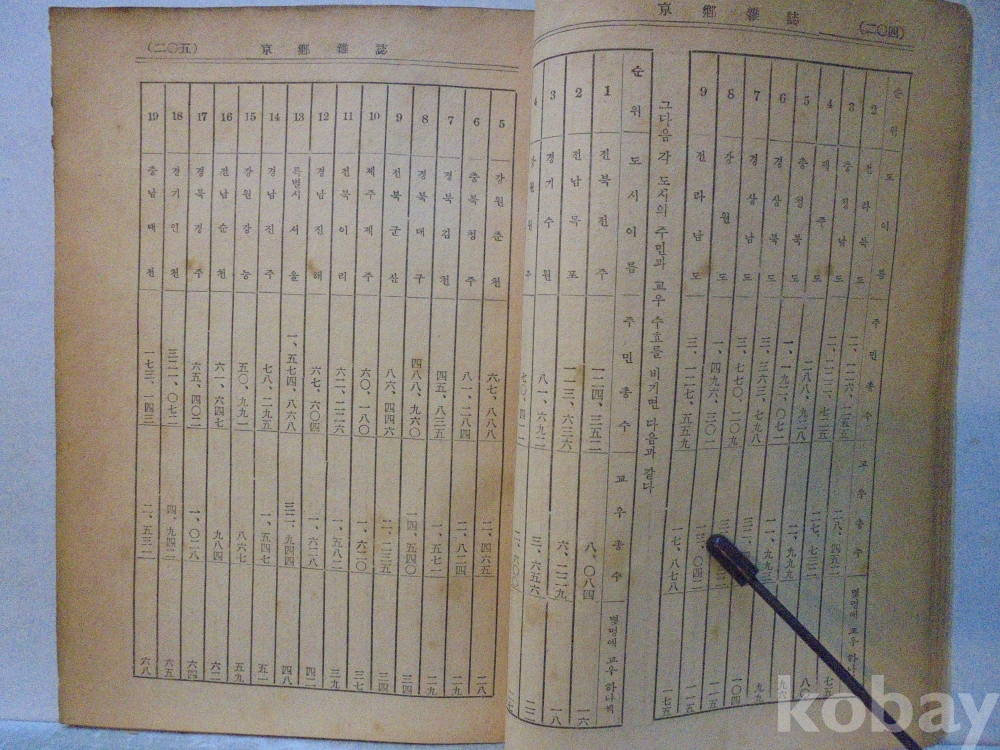 京鄕雜誌 (二〇四)
순위 도 이름 주민총수 교우총수 몇명에 교우 하나씩
2 전라북도 二、一二六、二五五 二八、四五二 七五
3 충청남도 二、二二三、七二五 二七、七三二 八〇
4 제주도 二八八、九二八
5 충청북도 一、一九二、〇七二 一一、九九三
6 경상북도 三、三六三、七九八 九九
7 경상남도 三、七七〇、二〇九 一〇四
8 강원도 一、四九六、三〇一 一三、〇四二 一一五
9 전라남도 三、一二七、五五九 一七、八七八 一七五
그다음 각 도시의 주민과 교우 수효를 비기면 다음과 같다
순위 도시이름 주민총수 교우총수 몇명에 교우 하나씩
1 전북전주 一二四、三五二 八、〇八四 一六
2 전남목포 一一三、六三六 六、二二九 一八
3 경기수원 八一、六九二 三、六五六 二二
4 강원원주 七〇、四一二
京鄕雜誌 (二〇五)
5 강원춘천 六七、八八八 二、四六五 二八
6 충북청주 八一、二八四 二、八二四 二九
7 경북김천 四五、八三五 一、五七二 二九
8 경북대구 四八八、九六〇 一四、五四〇 三四
9 전북군산 八六、四四六 二、二三五 三四
10 제주제주 六〇、一八〇 一、六二〇 三七
11 전북이리 六二、二二六 一、五八二 三九
12 경남진해 六七、六〇四 一、六二八 四二
13 특별시서울 一、五七四、八六八 三二、九四四 四八
14 경남진주 七八、二九五 一、五四七 五一
15 강원강능 五〇、九九一 八六七 五九
16 전남순천 六一、六四七 九八四 六二
17 경북경주 六五、四〇二 一、〇二八 六四
18 경기인천 三二一、〇七二 四、九四二 六五
19 충남대전 一七三、一四三 二、五三二 六八
kobay